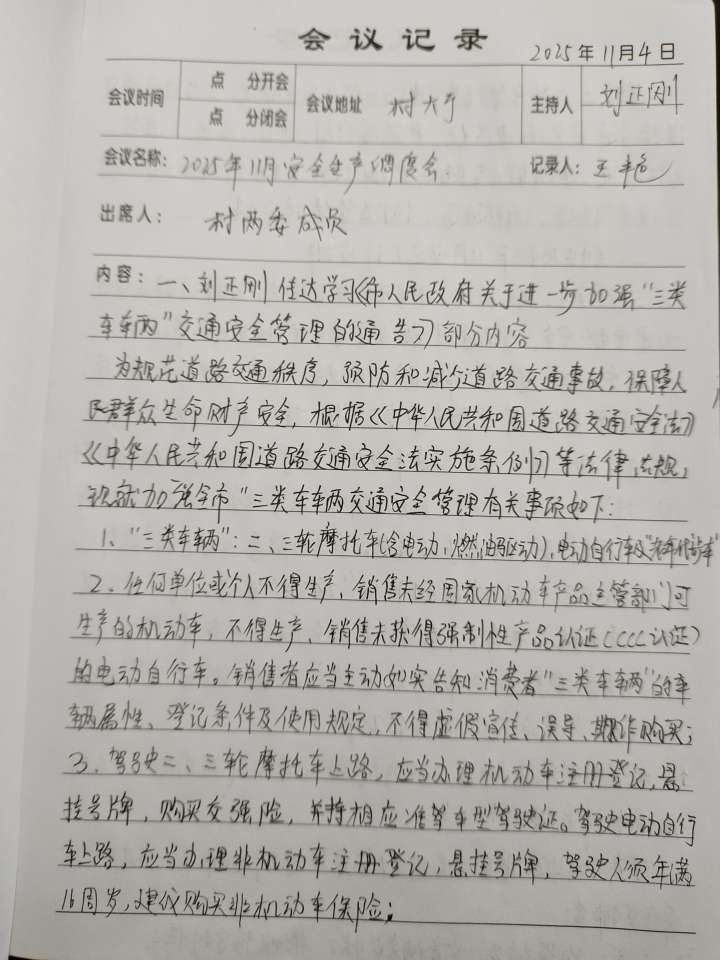 会议记录
2025年11月4日
会议时间 点 分开会 点 分闭会 会议地址 村大厅 主持人 刘正刚
会议名称：2025年11月安全生产调度会. 记录人：王艳
出席人：村两委成员
内容：一、刘正刚传达学习《市人民政府关于进一步加强"三类
车车辆"交通安全管理的通告》部分内容
为规范道路交通秩序，预防和减少道路交通事故，保障人
民群众生命财产安全，根据《中华人民共和国道路交通安全法》
《中华人民共和国道路交通安全法实施条例》等法律，法规，
现就加强全市"三类车车辆交通安全管理有关事项如下：
1、"三类车辆"：二、三轮摩托车(含电动、燃油驱动)，电动自行车及"老年代步车"
2、任何单位或个人不得生产、销售未经国家机动车产品主管部门许可
生产的机动车，不得生产、销售未获得强制性产品认证(CCC认证)
的电动自行车。销售者应当主动如实告知消费者"三类车辆"的车
辆属性、登记条件及使用规定，不得虚假宣传、误导、欺诈购买；
3、驾驶二、三轮摩托车上路，应当办理机动车注册登记，悬
挂号牌，购买交强险，并持相应准驾车型驾驶证。驾驶电动自行
车上路，应当办理非机动车注册登记，悬挂号牌，驾驶人须年满
16周岁，建议购买非机动车保险；